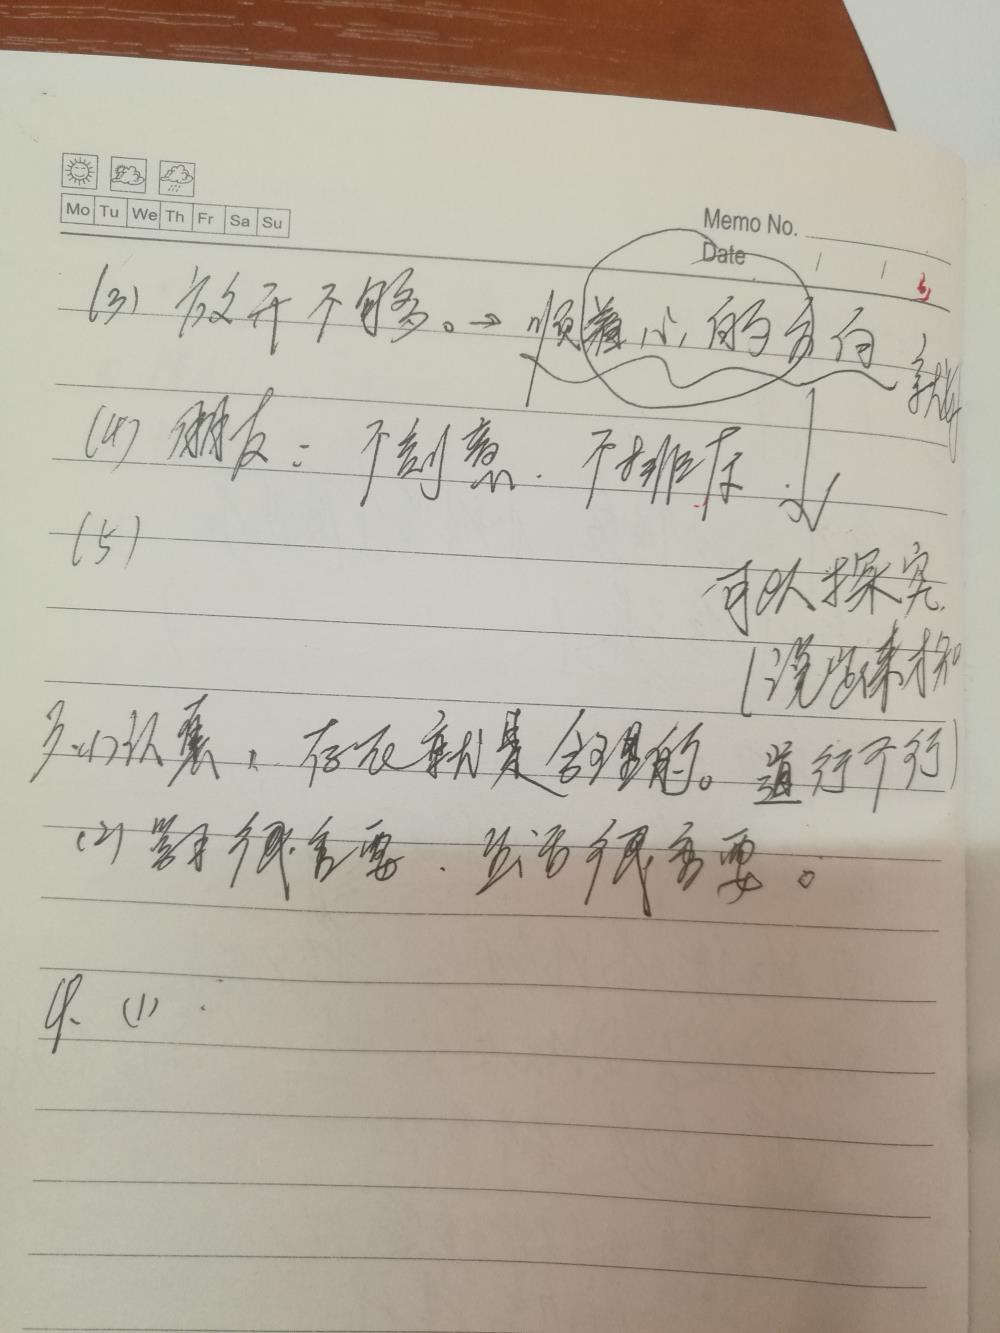 Mo Tu We Th Fr Sa Su
Memo No.
Date
(3) 放开不够。→ 顺着心的方向 就好
(4) 朋友：不刻意．不排斥
(5)
可以探究
(说出来才知
道行不行)
3.(1)认真，存在就是合理的。
(2) 学习很重要．生活很重要。
4. (1).